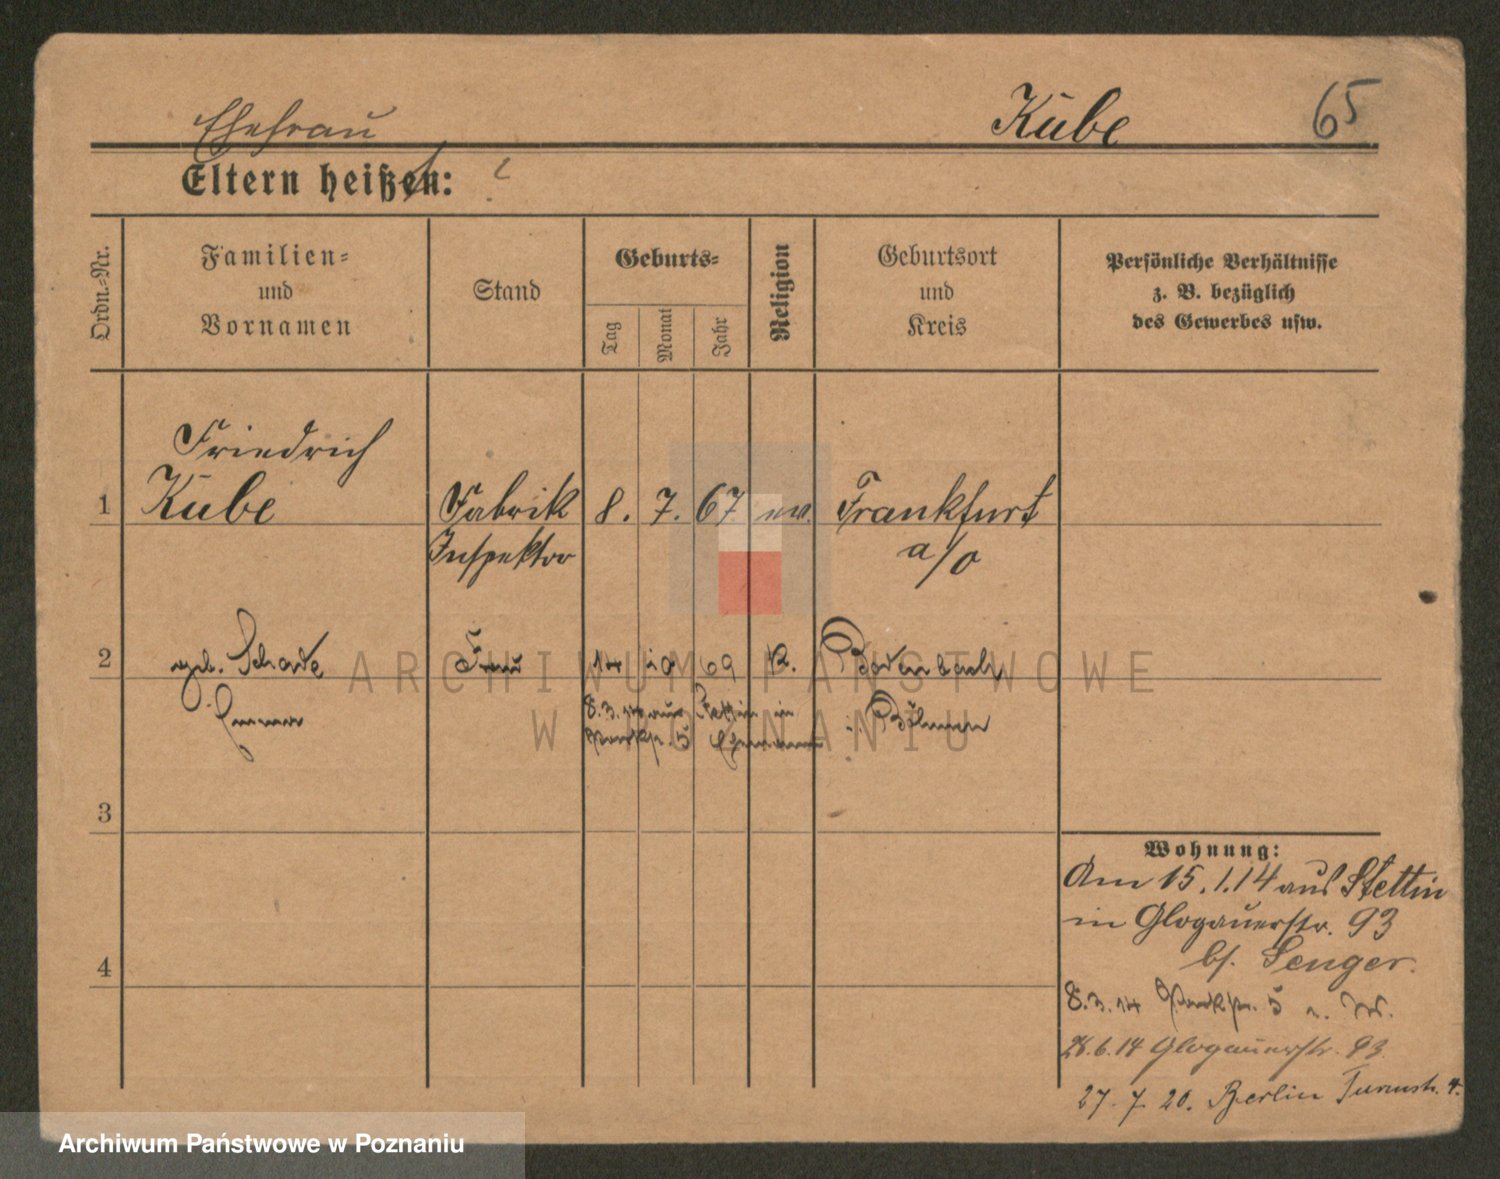 Kube 65
Ehefrau
Eltern heißen:
Ordn.-Nr.
Familien- und Vornamen
Stand
Geburts-
Tag
Monat
Jahr
Religion
Geburtsort und Kreis
Persönliche Verhältnisse
z. B. bezüglich
des Gewerbes usw.
Friedrich
1 Kube Fabrik 8. 7. 67 ev. Frankfurt
Inspektor a/O
2 geb. Schade Frau 14 10 69 k. Bodenbach
Emma 8.3.14 aus Stettin in i. Böhmen
Parkstr. 5
3
4
Wohnung:
Am 15.1.14 aus Stettin
in Glogauerstr. 93
bf. Senger.
8.3.14 Parkstr. 5
28.6.14 Glogauerstr. 93
27.7.20. Berlin Turmstr. 4.
ARCHIWUM PAŃSTWOWE
W POZNANIU
Archiwum Państwowe w Poznaniu